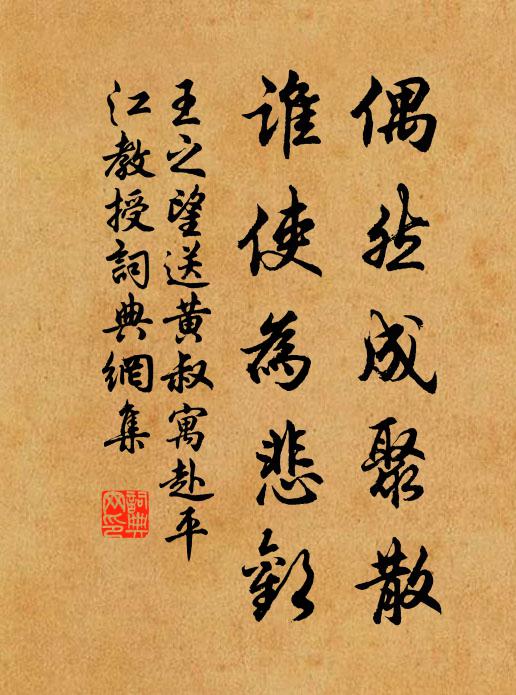 偶然成聚散
誰使為悲歡
王之望送黃叔寓赴平
江教授詞典網集
詞典
网印